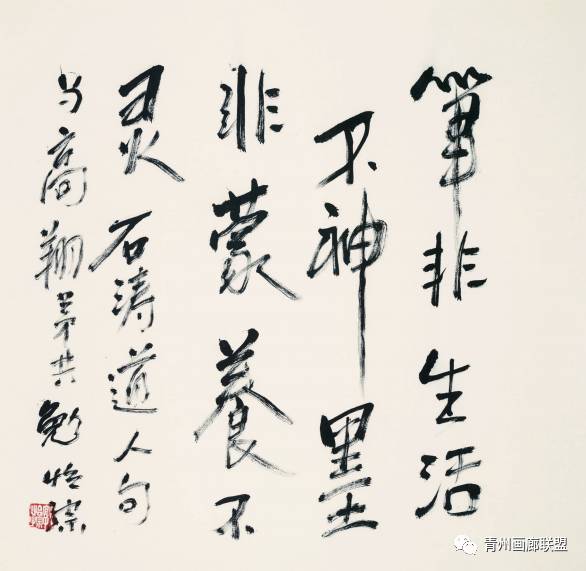 筆非生活
不神墨
非蒙養不
灵石涛道人句
与高翔弟共勉怡宗
青州画廊联盟